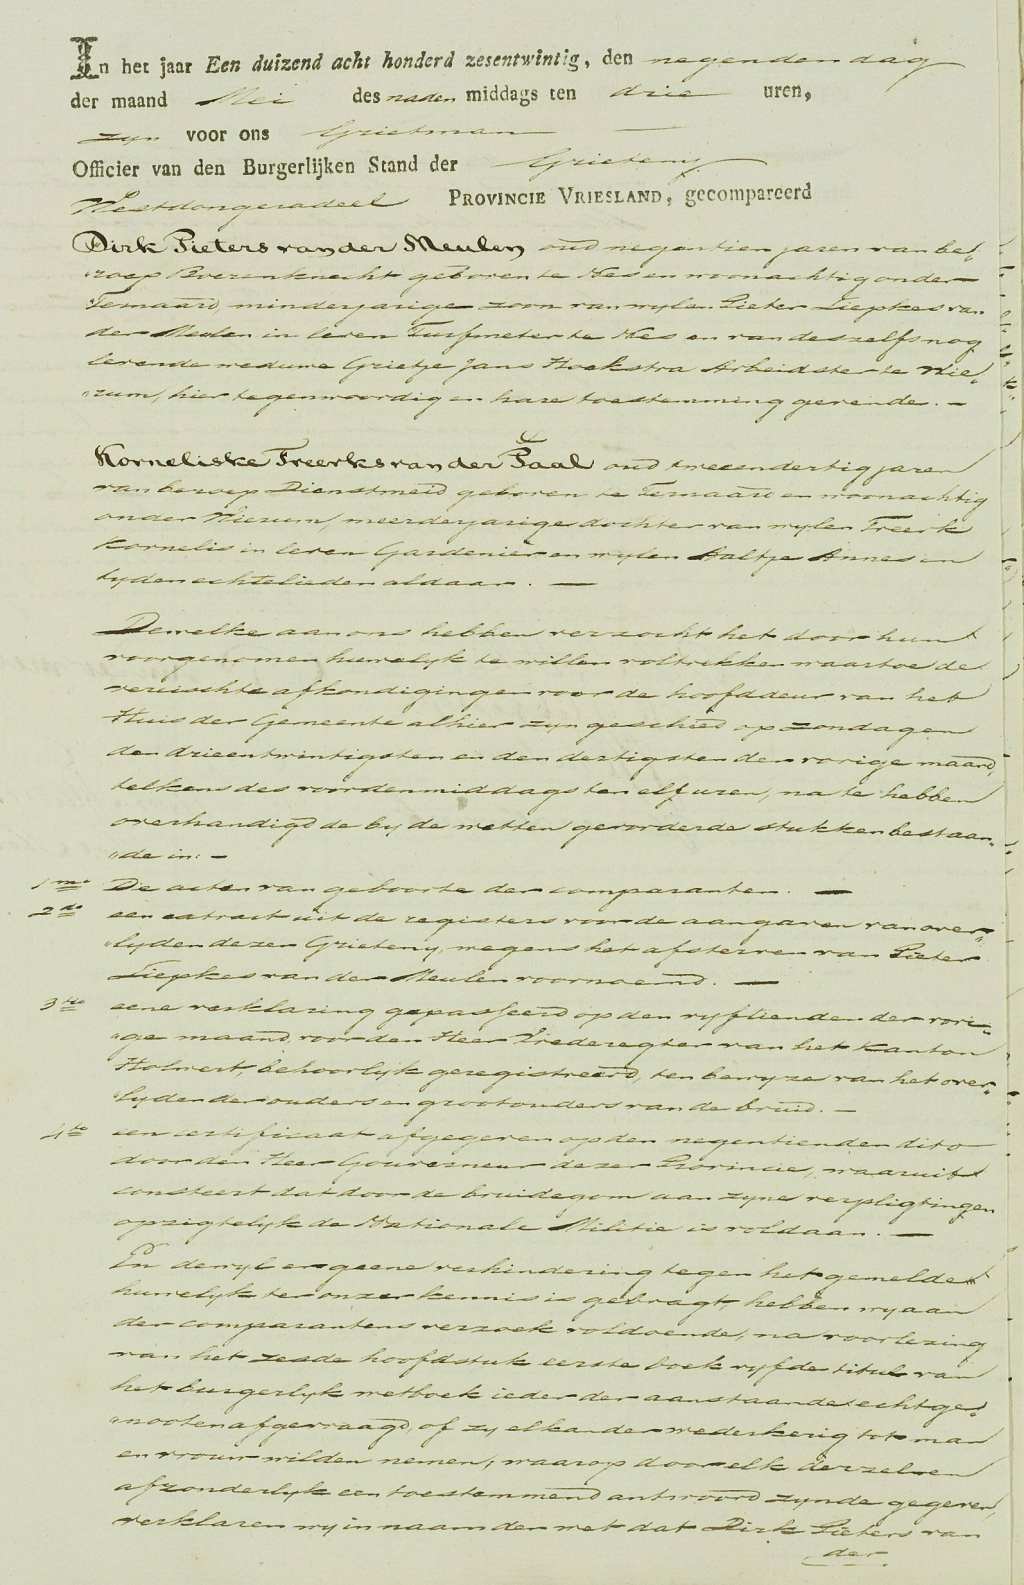 In het jaar Een duizend acht honderd zesentwintig, den negenden dag
der maand Mei des naden middags ten drie uren,
zyn voor ons Grietman
Officier van den Burgerlijken Stand der Grieteny
Westdongeradeel PROVINCIE VRIESLAND, gecompareerd
Dirk Pieters van der Meulen oud negentien jaren van be-
„roep Boerenknecht geboren te Nes en woonachtig onder
Ternaard, minderjarige zoon van wylen Pieter Liepkes van
der Meulen in leven Turfmeter te Nes en van deszelfs nog
levende weduwe Grietje Jans Hoekstra Arbeidster te Nie-
„zum, hier tegenwoordig en hare toestemming gevende. —
Korneliske Freerks van der Paal oud tweeendertig jaren
van beroep Dienstmeid geboren te Ternaard en woonachtig
onder Niezum, meerderjarige dochter van wylen Freerk
Kornelis in leven Gardenier en wylen Aaltje Annes in
tyden echtelieden aldaar. —
Dewelke aan ons hebben verzocht het door hun
voorgenomen huwelyk te willen voltrekken waartoe de
vereischte afkondigingen voor de hoofddeur van het
Huis der Gemeente alhier zyn geschied op zondagen
den drieentwintigsten en den dertigsten der vorige maand,
telkens des voordenmiddags ten elf uren, na te hebben
overhandigd de by de wetten gevorderde stukken bestaan-
„de in: —
1mo De acten van geboorte der comparanten. —
2do een extract uit de registers voor de aangaven van over-
„lyden dezer Grieteny, wegens het afsterven van Pieter
Liepkes van der Meulen voornoemd. —
3tio eene verklaring gepasseerd op den vyftienden der vori-
„ge maand, voor den Heer Vrederegter van het kanton
Holwert, behoorlyk geregistreerd, ten bewyze van het over-
„lyden der ouders en grootouders van de bruid. —
4to een certificaat afgegeven op den negentienden dito
door den Heer Gouverneur dezer Provincie, waaruit
consteert dat door de bruidegom aan zyne verpligtingen
opzigtelyk de Nationale Militie is voldaan. —
En dewyl er geene verhindering tegen het gemelde
huwelyk ter onzer kennis is gebragt, hebben wy aan
der comparantens verzoek voldoende, na voorlezing
van het zesde hoofdstuk eerste boek vyfde titul van
het burgerlyk wetboek ieder der aanstaande echtge-
„nooten afgevraagd, of zy elkander wederkerig tot man
en vrouw wilden nemen, waarop door elk derzelven
afzonderlyk een toestemmend antwoord zynde gegeven,
verklaren wy in naam der wet dat Dirk Pieters van
der